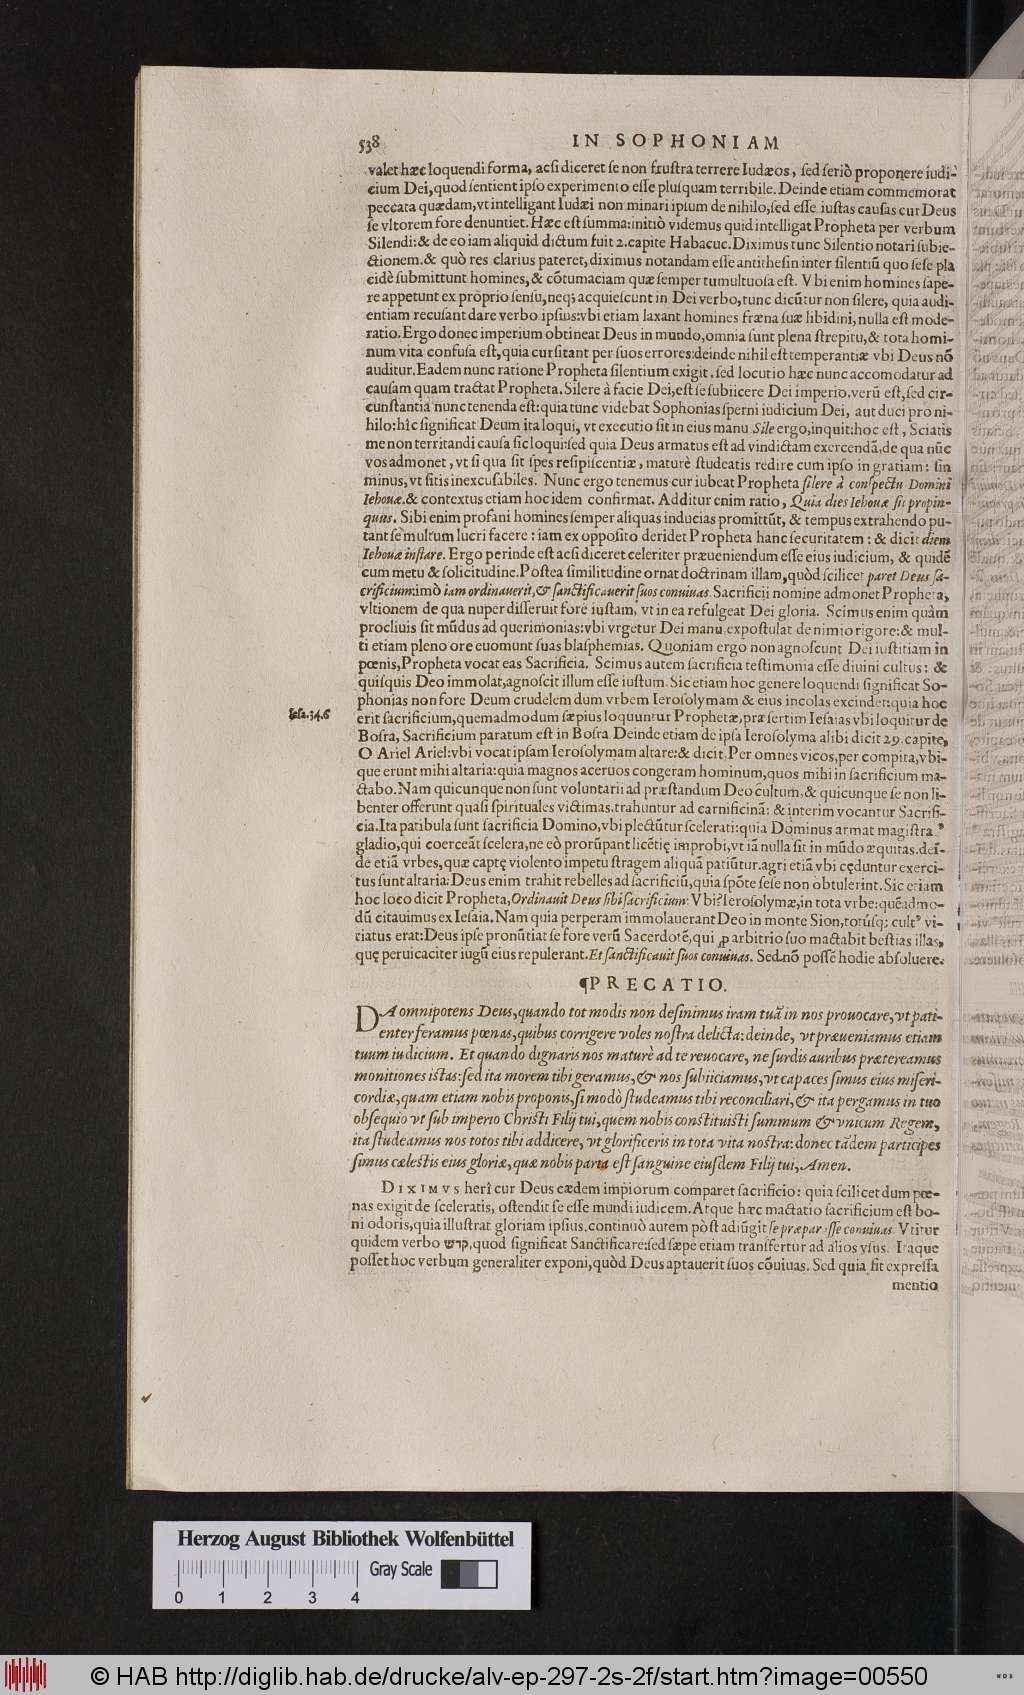 538 IN SOPHONIAM
valet hæc loquendi forma, acſi diceret ſe non fruſtra terrere Iudæos, ſed ſeriò proponere iudi-
cium Dei, quod ſentient ipſo experimento eſſe pluſquam terribile. Deinde etiam commemorat
peccata quædam, vt intelligant Iudæi non minari ipſum de nihilo, ſed eſſe iuſtas cauſas cur Deus
ſe vltorem fore denuntiet. Hæc eſt ſumma: initiò videmus quid intelligat Propheta per verbum
Silendi: & de eo iam aliquid dictum fuit 2. capite Habacuc. Diximus tunc Silentio notari ſubie-
ctionem. & quò res clarius pateret, diximus notandam eſſe antitheſin inter ſilentiũ quo ſeſe pla
cidè ſubmittunt homines, & cõtumaciam quæ ſemper tumultuoſa eſt. Vbi enim homines ſape-
re appetunt ex proprio ſenſu, neq; acquieſcunt in Dei verbo, tunc dicũtur non ſilere, quia audi-
entiam recuſant dare verbo ipſius: vbi etiam laxant homines fræna ſuæ libidini, nulla eſt mode-
ratio. Ergo donec imperium obtineat Deus in mundo, omnia ſunt plena ſtrepitu, & tota homi-
num vita confuſa eſt, quia curſitant per ſuos errores: deinde nihil eſt temperantiæ vbi Deus nõ
auditur. Eadem nunc ratione Propheta ſilentium exigit. ſed locutio hæc nunc accomodatur ad
cauſam quam tractat Propheta. Silere à facie Dei, eſt ſe ſubiicere Dei imperio. verũ eſt, ſed cir-
cunſtantia nunc tenenda eſt: quia tunc videbat Sophonias ſperni iudicium Dei, aut duci pro ni-
hilo: hîc ſignificat Deum ita loqui, vt executio ſit in eius manu Sile ergo, inquit: hoc eſt, Sciatis
me non territandi cauſa ſic loqui: ſed quia Deus armatus eſt ad vindictam exercendã, de qua nũc
vos admonet, vt ſi qua ſit ſpes reſipiſcentiæ, maturè ſtudeatis redire cum ipſo in gratiam: ſin
minus, vt ſitis inexcuſabiles. Nunc ergo tenemus cur iubeat Propheta ſilere à conſpectu Domini
Iehouæ. & contextus etiam hoc idem confirmat. Additur enim ratio, Quia dies Iehouæ ſit propin-
quus. Sibi enim profani homines ſemper aliquas inducias promittũt, & tempus extrahendo pu-
tant ſe multum lucri facere: iam ex oppoſito deridet Propheta hanc ſecuritatem: & dicit diem
Iehouæ inſtare. Ergo perinde eſt acſi diceret celeriter præueniendum eſſe eius iudicium, & quidẽ
cum metu & ſolicitudine. Poſtea ſimilitudine ornat doctrinam illam, quòd ſcilicet paret Deus ſa-
crificium: imò iam ordinauerit, & ſanctificauerit ſuos conuiuas. Sacrificij nomine admonet Propheta,
vltionem de qua nuper diſſeruit fore iuſtam, vt in ea refulgeat Dei gloria. Scimus enim quàm
procliuis ſit mũdus ad querimonias: vbi vrgetur Dei manu expoſtulat de nimio rigore: & mul-
ti etiam pleno ore euomunt ſuas blaſphemias. Quoniam ergo non agnoſcunt Dei iuſtitiam in
pœnis, Propheta vocat eas Sacrificia. Scimus autem ſacrificia teſtimonia eſſe diuini cultus: &
quiſquis Deo immolat, agnoſcit illum eſſe iuſtum. Sic etiam hoc genere loquendi ſignificat So-
phonias non fore Deum crudelem dum vrbem Ieroſolymam & eius incolas excindet: quia hoc
Ieſa. 34. 6
erit ſacrificium, quemadmodum ſæpius loquuntur Prophetæ, præſertim Ieſaias vbi loquitur de
Boſra, Sacrificium paratum eſt in Boſra Deinde etiam de ipſa Ieroſolyma alibi dicit 29. capite,
O Ariel Ariel: vbi vocat ipſam Ieroſolymam altare: & dicit, Per omnes vicos, per compita, vbi-
que erunt mihi altaria: quia magnos aceruos congeram hominum, quos mihi in ſacrificium ma-
ctabo. Nam quicunque non ſunt voluntarii ad præſtandum Deo cultum, & quicunque ſe non li-
benter offerunt quaſi ſpirituales victimas, trahuntur ad carnificinã: & interim vocantur Sacrifi-
cia. Ita patibula ſunt ſacrificia Domino, vbi plectũtur ſcelerati: quia Dominus armat magiſtratꝰ
gladio, qui coerceãt ſcelera, ne eò prorũpant licẽtię improbi, vt iã nulla ſit in mũdo æquitas. deĩ-
de etiã vrbes, quæ captę violento impetu ſtragem aliquã patiũtur. agri etiã vbi cęduntur exerci-
tus ſunt altaria: Deus enim trahit rebelles ad ſacrificiũ, quia ſpõte ſeſe non obtulerint. Sic etiam
hoc loco dicit Propheta, Ordinauit Deus ſibi ſacrificium: Vbi? Ieroſolymæ, in tota vrbe: quẽadmo-
dũ citauimus ex Ieſaia. Nam quia perperam immolauerant Deo in monte Sion, totúſq; cultꝰ vi-
tiatus erat: Deus ipſe pronũtiat ſe fore verũ Sacerdotẽ, qui ꝓ arbitrio ſuo mactabit beſtias illas,
quę peruicaciter iugũ eius repulerant. Et ſanctificauit ſuos conuiuas. Sed nõ poſſẽ hodie abſoluere.
¶PRECATIO.
DA omnipotens Deus, quando tot modis non deſinimus iram tuã in nos prouocare, vt pati-
enter feramus pœnas, quibus corrigere voles noſtra delicta: deinde, vt præueniamus etiam
tuum iudicium. Et quando dignaris nos maturè ad te reuocare, ne ſurdis auribus prætereamus
monitiones iſtas: ſed ita morem tibi geramus, & nos ſubiiciamus, vt capaces ſimus eius miſeri-
cordiæ, quam etiam nobis proponis, ſi modò ſtudeamus tibi reconciliari, & ita pergamus in tuo
obſequio vt ſub imperio Chriſti Filij tui, quem nobis conſtituiſti ſummum & vnicum Regem,
ita ſtudeamus nos totos tibi addicere, vt glorificeris in tota vita noſtra: donec tãdem participes
ſimus cæleſtis eius gloriæ, quæ nobis parta eſt ſanguine eiuſdem Filij tui, Amen.
DIXIMVS herì cur Deus cædem impiorum comparet ſacrificio: quia ſcilicet dum pœ-
nas exigit de ſceleratis, oſtendit ſe eſſe mundi iudicem. Atque hæc mactatio ſacrificium eſt bo-
ni odoris, quia illuſtrat gloriam ipſius. continuò autem pòſt adiũgit ſe præparaſſe conuiuas. Vtitur
quidem verbo קדש, quod ſignificat Sanctificare: ſed ſæpe etiam transfertur ad alios vſus. Itaque
poſſet hoc verbum generaliter exponi, quòd Deus aptauerit ſuos cõuiuas. Sed quia fit expreſſa
mentio
Herzog August Bibliothek Wolfenbüttel
Gray Scale
0 1 2 3 4
© HAB http://diglib.hab.de/drucke/alv-ep-297-2s-2f/start.htm?image=00550